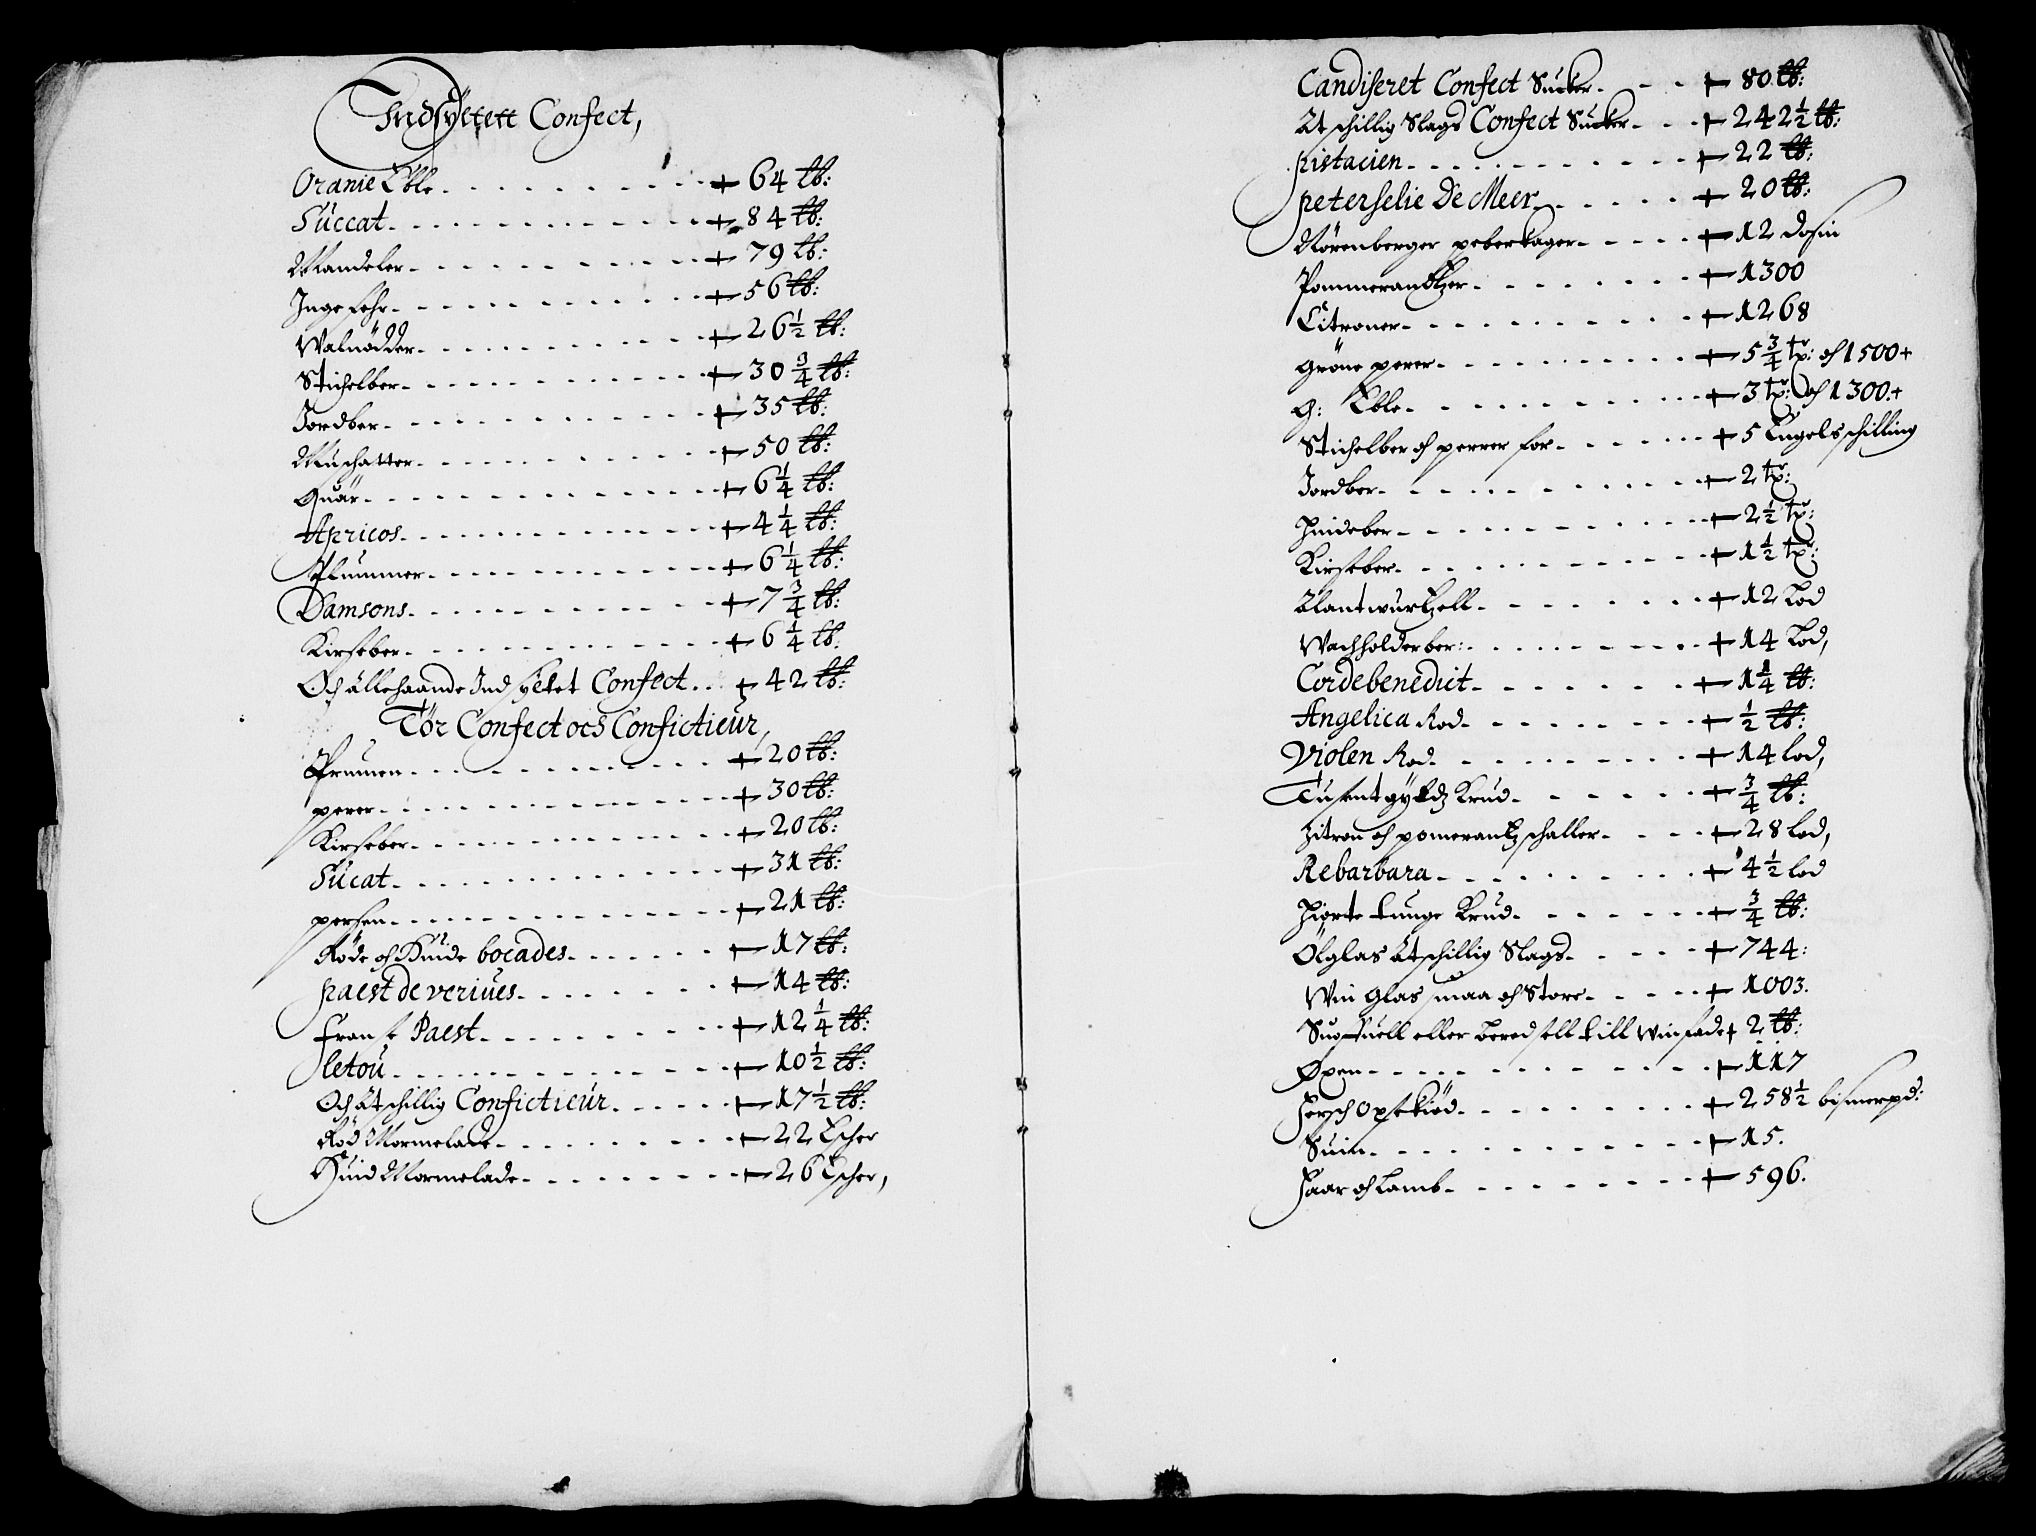 Indsyltett Confect,
Oranie Eble + 64 ℔:
Succat + 84 ℔:
Mandeler + 79 ℔:
Ingefehr + 56 ℔:
Walnödder + 26 1/2 ℔:
Stichelber + 30 3/4 ℔:
Jordber + 35 ℔:
Muschatter + 50 ℔:
Quär + 6 1/4 ℔:
Apricos + 4 1/4 ℔:
Plummer + 6 1/4 ℔:
Damsons + 7 3/4 ℔:
Kirseber + 6 1/4 ℔:
Och allehaande Indsyltet Confect + 42 ℔:
Tör Confect ocs Confictieur,
Prumen + 20 ℔:
perer + 30 ℔:
Kirseber + 20 ℔:
Sucat + 31 ℔:
persen + 21 ℔:
Röde och Huide bocades + 17 ℔:
paest de veriues + 14 ℔:
Fransk Paest + 12 1/4 ℔:
letou + 10 1/2 ℔:
Och Atschillig Confictieur + 17 1/2 ℔:
Röd Mormelade + 22 Escher
Huid Mormelade + 26 Escher,
Candiseret Confect Sucker + 80 ℔:
Atschillig Slags Confect Sucker + 242 1/2 ℔:
pistacien + 22 ℔:
peterselie De Meer + 20 ℔:
Nörenberger peberkager + 12 dosin
Pommerantzer + 1300
Citroner + 1268
Gröne perer + 5 3/4 tr: och 1500 +
G: Eble + 3 tr: och 1300. +
Stichelber och perrer for + 5 Engelsschilling
Jordber + 2 tr:
Hindeber + 2 1/2 tr:
Kirseber + 1 1/2 tr:
Alantwurtzell + 12 Lod
Wachholderber: + 14 Lod,
Cordebenedict + 1 1/4 ℔:
Angelica Rod + 1/2 ℔:
Violen Rod + 14 lod,
Tusentgyldz Krud + 3/4 ℔:
Zitron och pomerantzschaller + 28 lod,
Rebarbara + 4 1/2 lod
Hiorte tunge Krud + 3/4 ℔:
Ölglas Atschillig Slags + 744:
Win Glas smaa och Store + 1003.
eller beredsell till winfade + 2 ℔:
Øxen + 117
Fersch Oxekiöd + 258 1/2 bismerpd:
Suin + 15.
Faar och Lamb + 596.